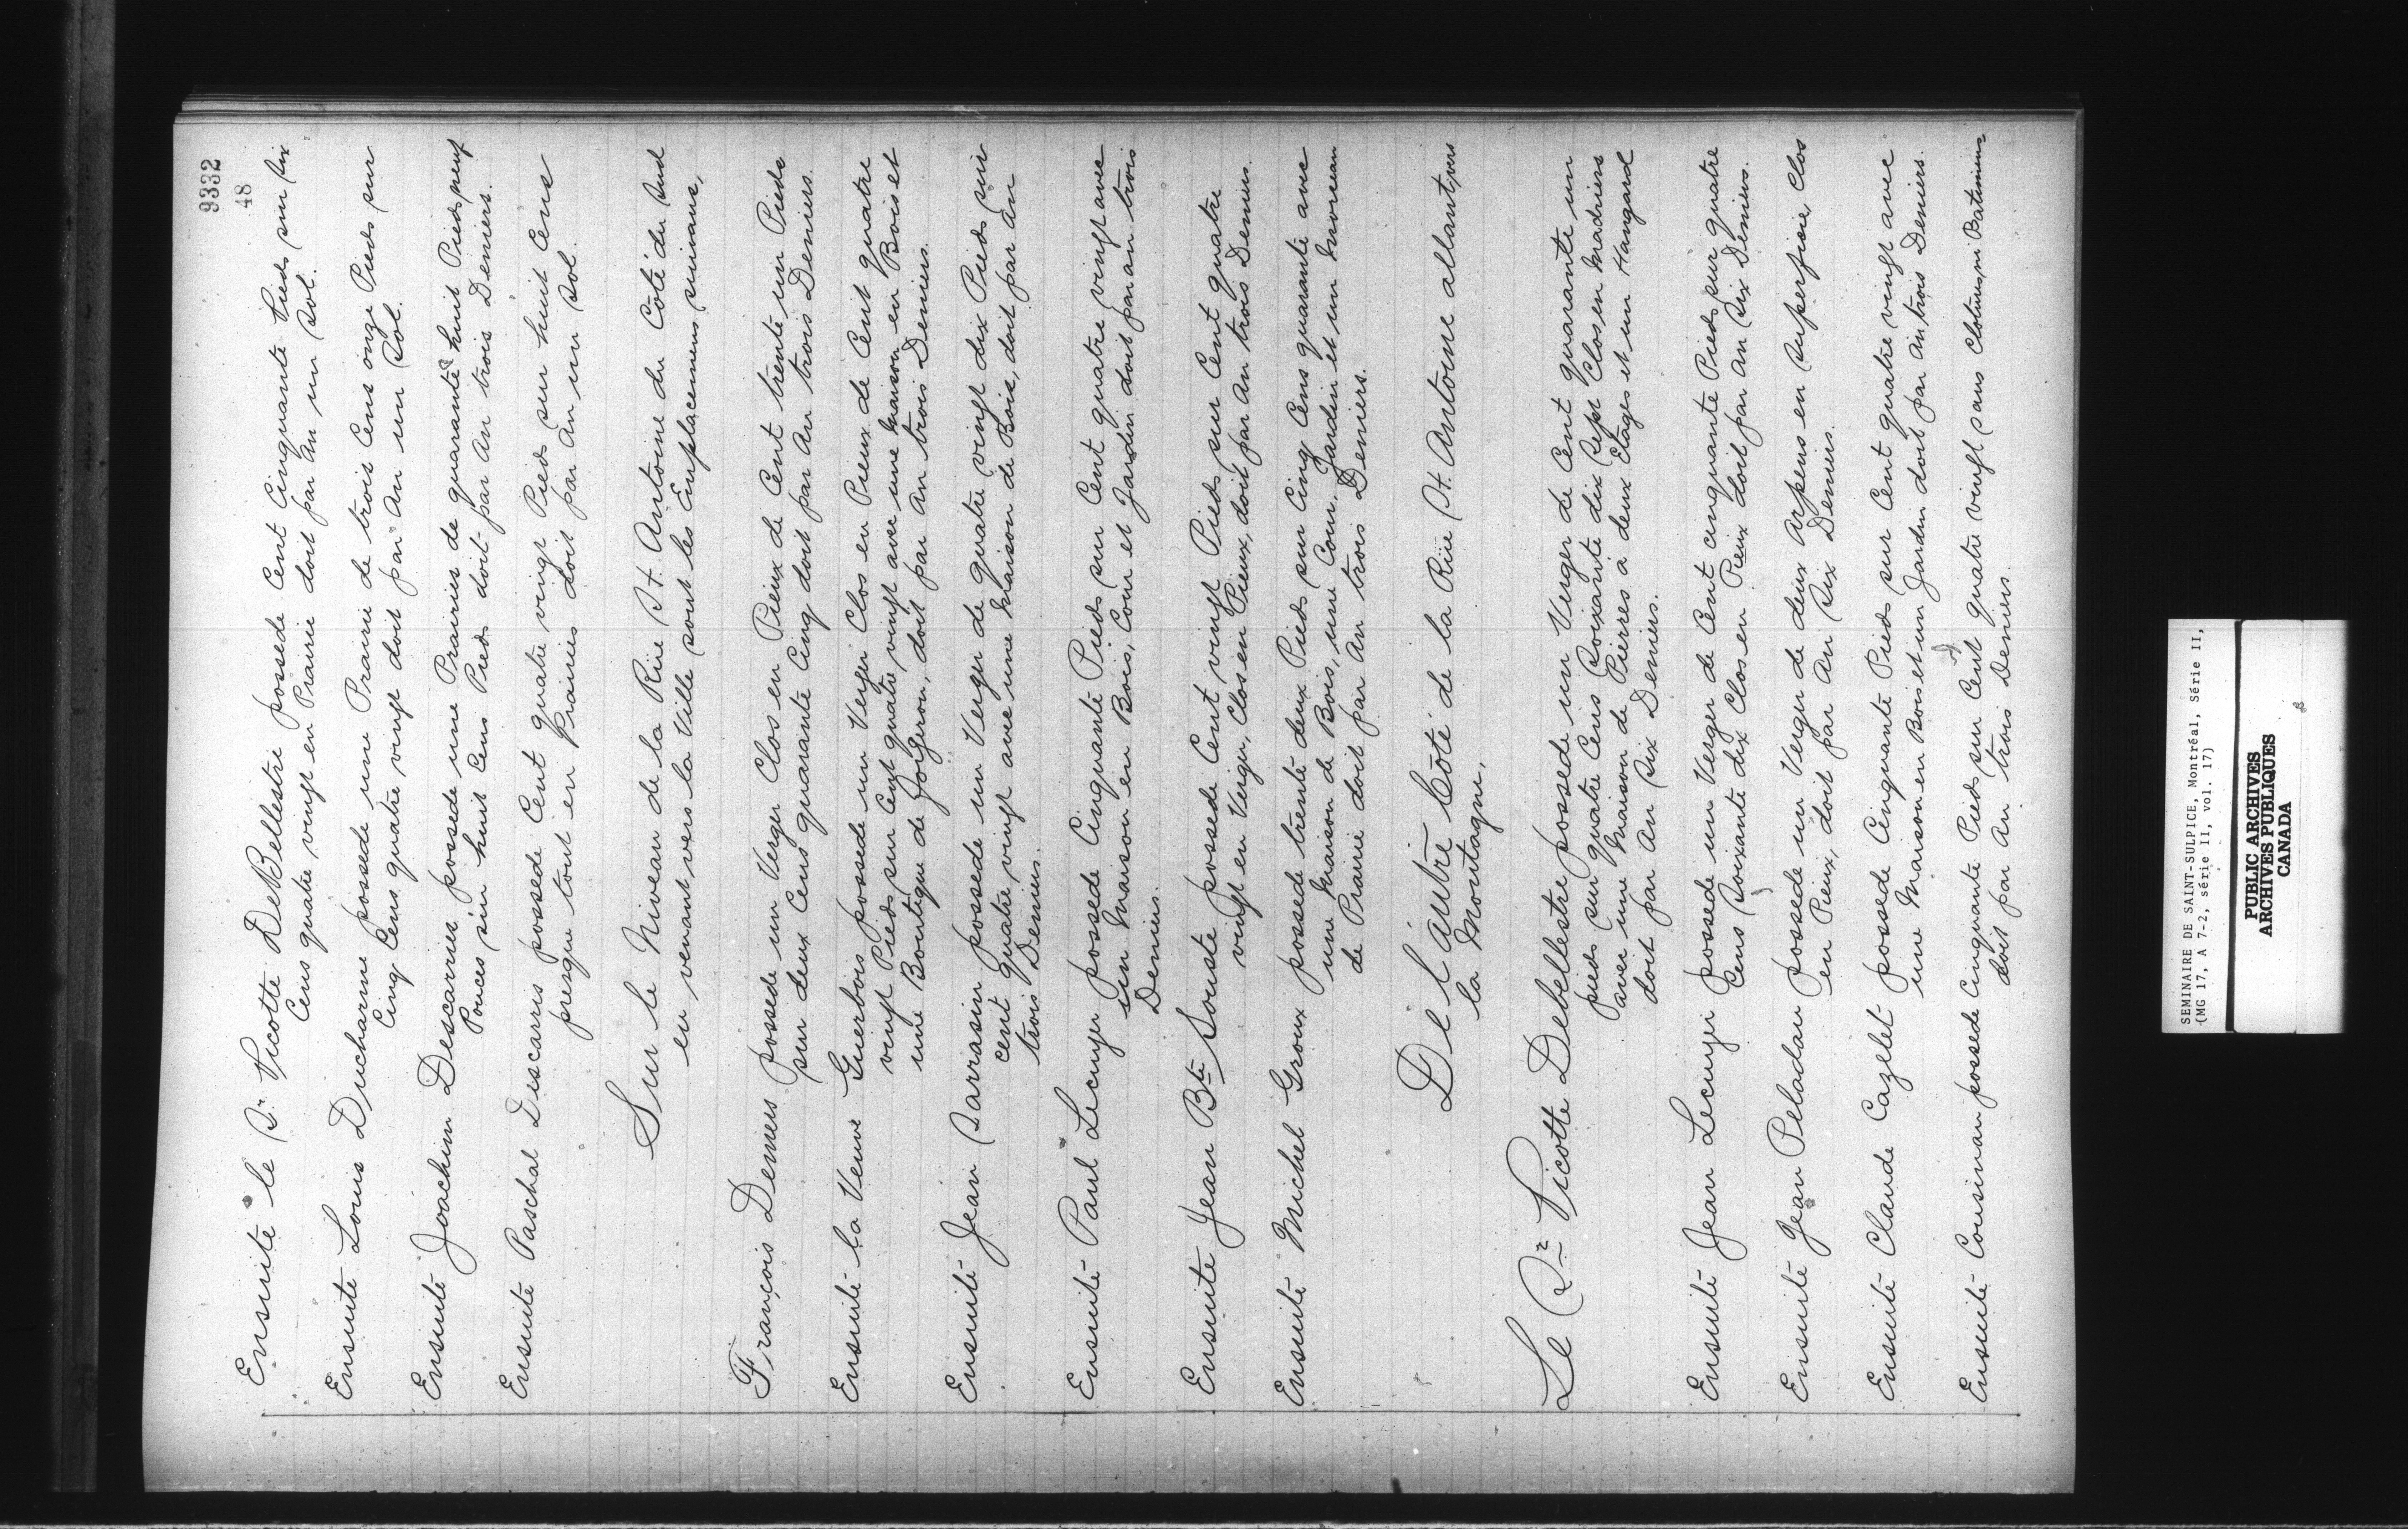 9332
48
Ensuite le Sr. Picotte DeBellestre possede Cent Cinquante Pieds sur Six
Cens quatre vingt en Prairie doit par An un Sol.
Ensuite Louis Ducharme possede une Prairie de trois Cens onze Pieds sur
Cinq Cens quatre vingt doit par An un Sol.
Ensuite Joachim Descarries possede une Prairie de quarante huit Pieds neuf
Pouces sur huit Cens Pieds doit par An trois Deniers.
Ensuite Paschal Descarris possede Cent quatre vingt Pieds sur huit Cens
presque tout en Prairies doit par An un Sol.
Sur le Niveau de la Rüe St. Antoine du Coté du Sud
en venant vers la Ville sont les Emplacemens suivans,
François Deniers possede un Verger Clos en Pieux de Cent trente un Pieds
sur deux Cens quarante Cinq doit par An trois Deniers.
Ensuite la Veuve Guerbois possede un Verger Clos en Pieux de Cent quatre
vingt Pieds sur Cent quatre vingt avec une Maison en Bois et
une Boutique de Forgeron, doit par An trois Deniers.
Ensuite Jean Sarrasin possede un Verger de quatre vingt dix Pieds sur
cent quatre vingt avec une Maison de Bois, doit par An
trois Deniers.
Ensuite Paul Lecuyer possede Cinquante Pieds sur Cent quatre vingt avec
un Maison en Bois, Cour et Jardin doit par an trois
Deniers.
Ensuite Jean Bte Souste possede Cent vingt Pieds sur Cent quatre
vingt en Verger, Clos en Pieux, doit par An trois Deniers.
Ensuite Michel Groux possede trente deux Pieds sur Cinq Cens quarante avec
une Maison de Bois, une Cour, Jardin et un Morceau
de Prairie doit par An trois Deniers.
De l'autre Côté de la Rüe St. Antoine allant vers
la Montagne,
Le Sr Picotte Debellestre possede un Verger de Cent quarante un
pieds sur quatre Cens Soixante dix Sept Clos en Madriers
avec une Maison de Pierres a deux Etages et un Hangard
doit par An Six Deniers.
Ensuite Jean Lecuyer possede un Verger de Cent cinquante Pieds sur quatre
Cens Soixante dix Clos en Pieux doit par An Six Deniers.
Ensuite Jean Peladau possede un Verger de deux Arpens en Superficie Clos
en Pieux, doit par An Six Deniers.
Ensuite Claude Cazelet possede Cinquante Pieds sur Cent quatre vingt avec
une Maison en Bois et un Jardin doit par An trois Deniers.
Ensuite Cousinau possede Cinquante Pieds sur Cent quatre vingt sans Clotures, ni Batimens
doit par An trois Deniers.
SEMINAIRE DE SAINT-SULPICE, Montréal, Série II,
(MG 17, A 7-2, série II, vol. 17)
PUBLIC ARCHIVES
ARCHIVES PUBLIQUES
CANADA